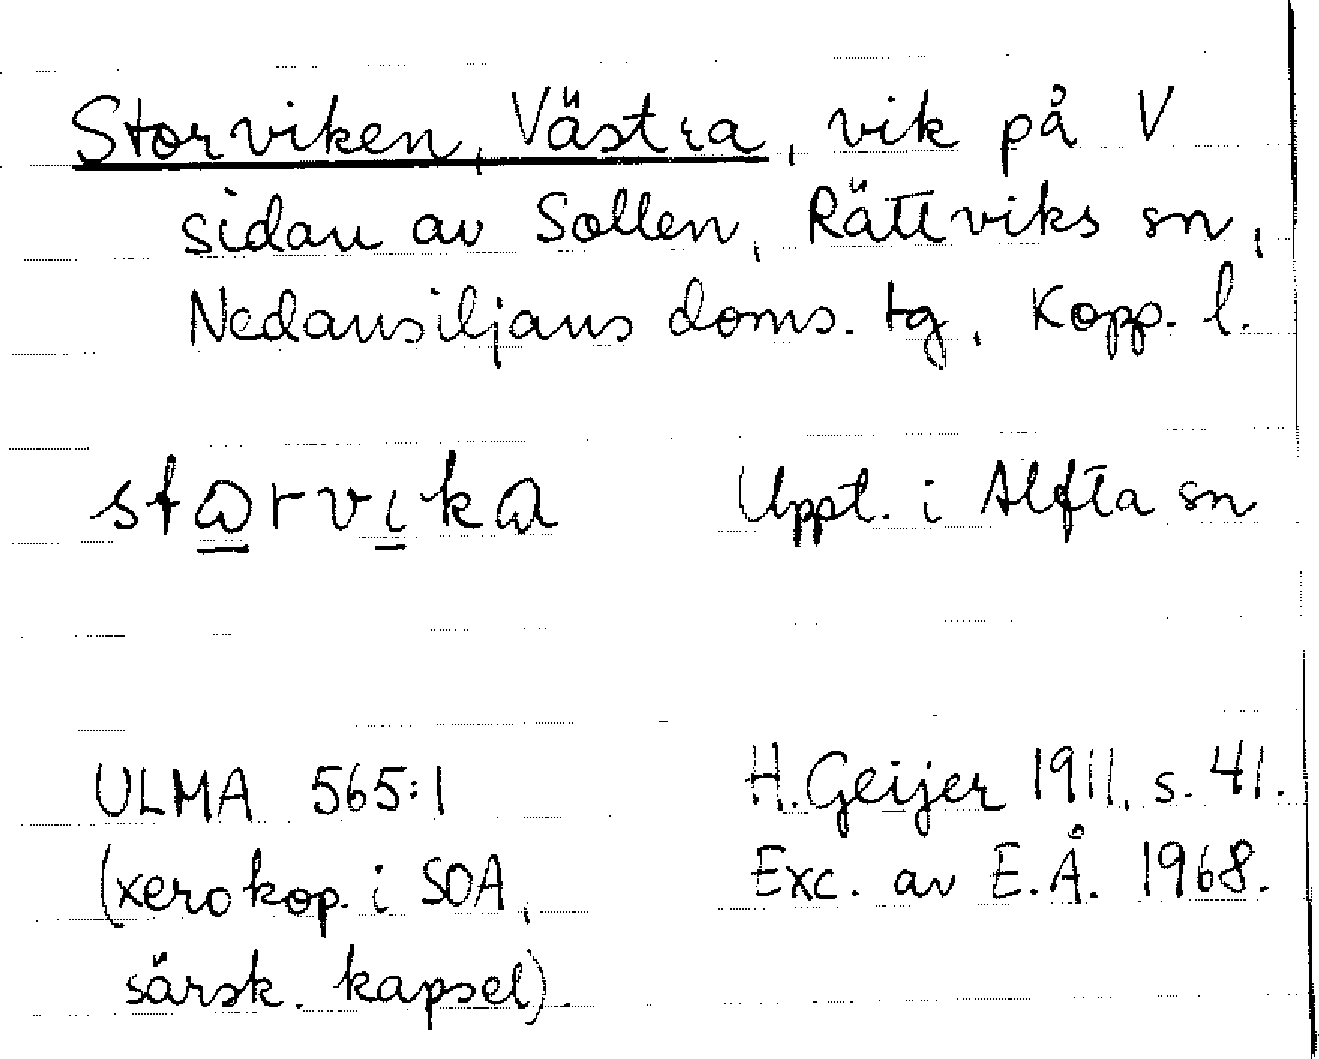 Storviken, Västra, vik på V
sidan av Sollen, Rättviks sn,
Nedansiljans doms. tg, Kopp. l.
Uppt. i Alfta sn
ULMA 565:1
H. Geijer 1911, s. 41.
(xerokop. i SOA,
Exc. av E.Å. 1968.
särsk. kapsel).